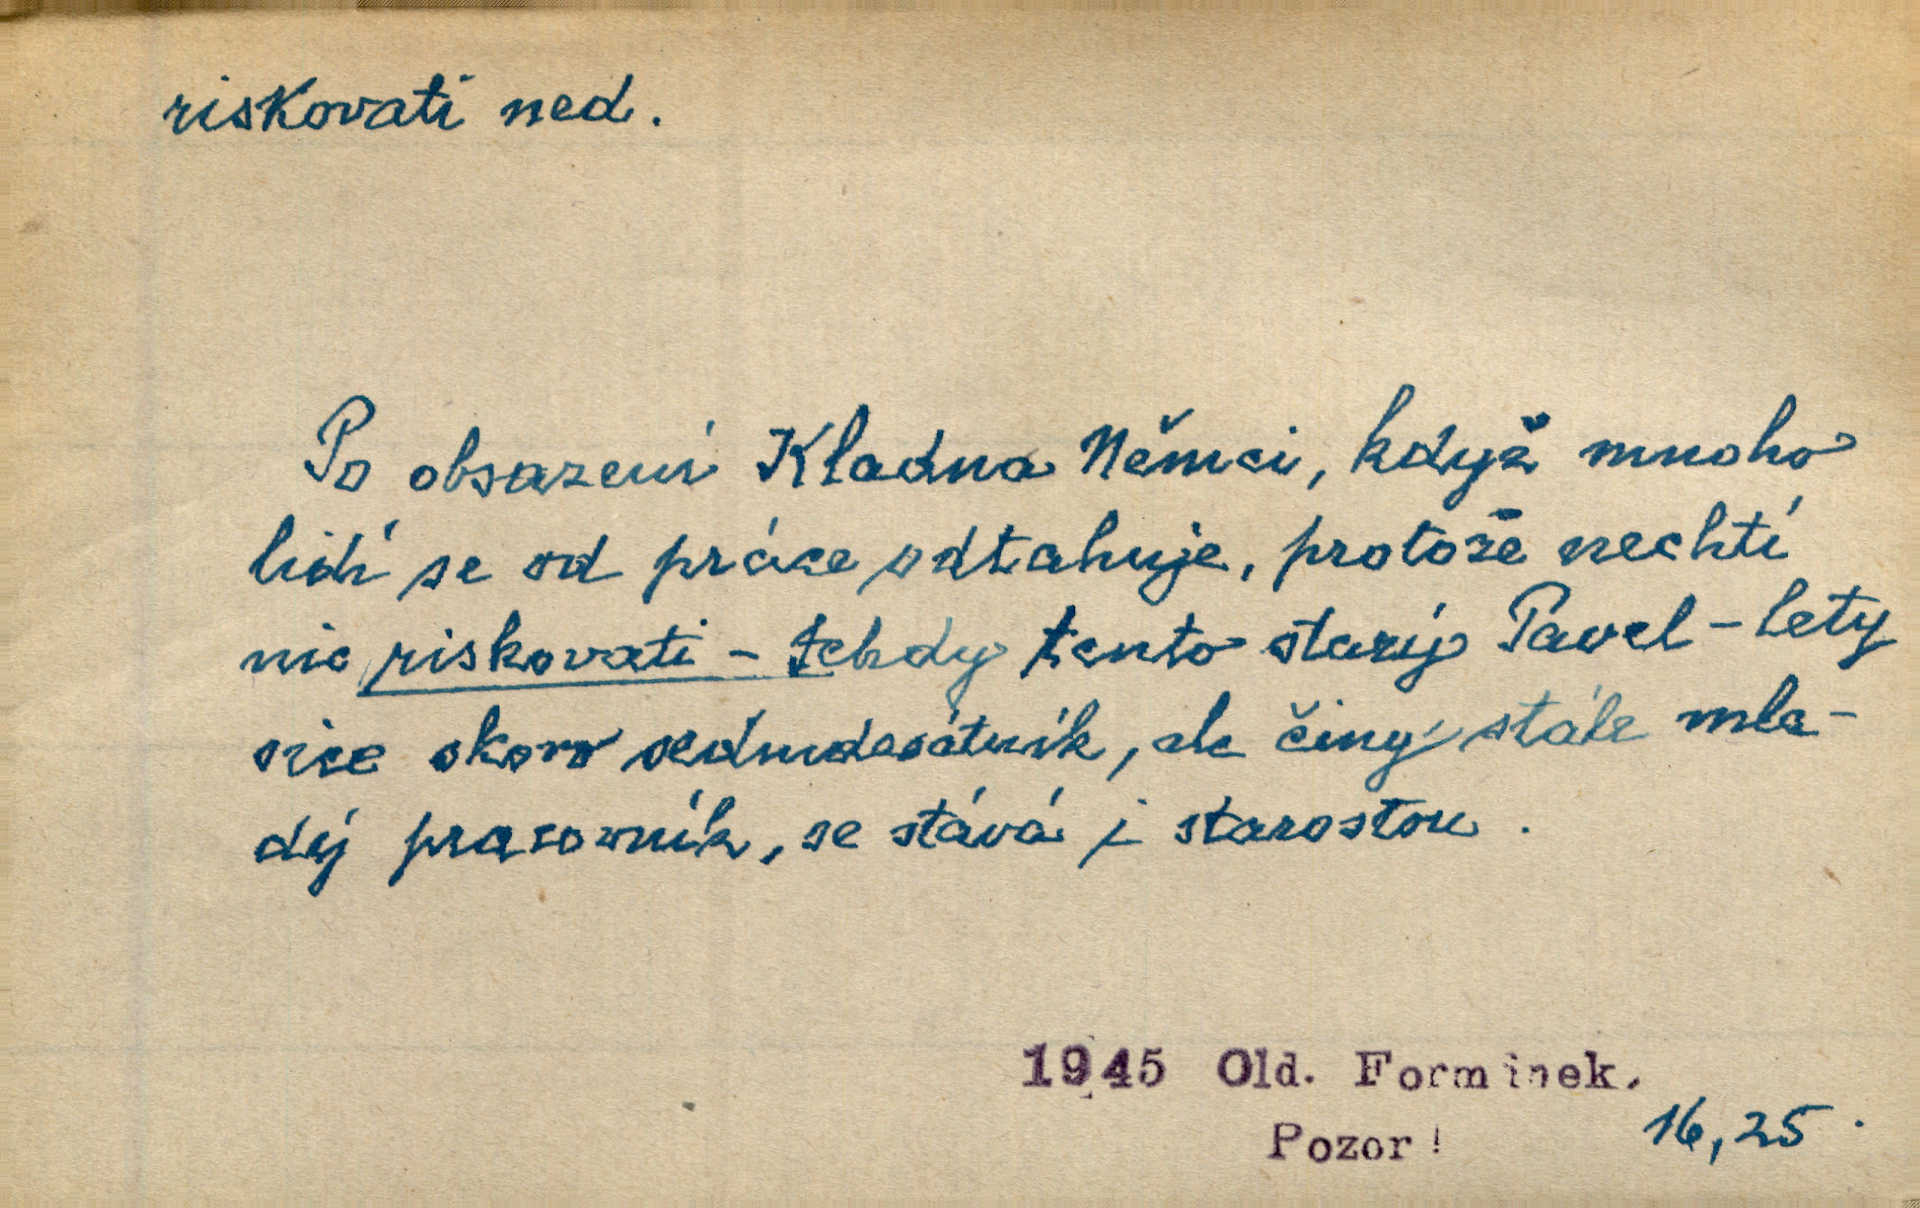 riskovati ned.
Po obsazení Kladna Němci, když mnoho
lidí se od práce odtahuje, protože nechtí
nic riskovati – tehdy tento starý Pavel – lety
sice skoro sedmdesátník, ale činy stále mla-
dý pracovník, se stává i starostou.
1945 Old. Forminek.
Pozor! 16,25.